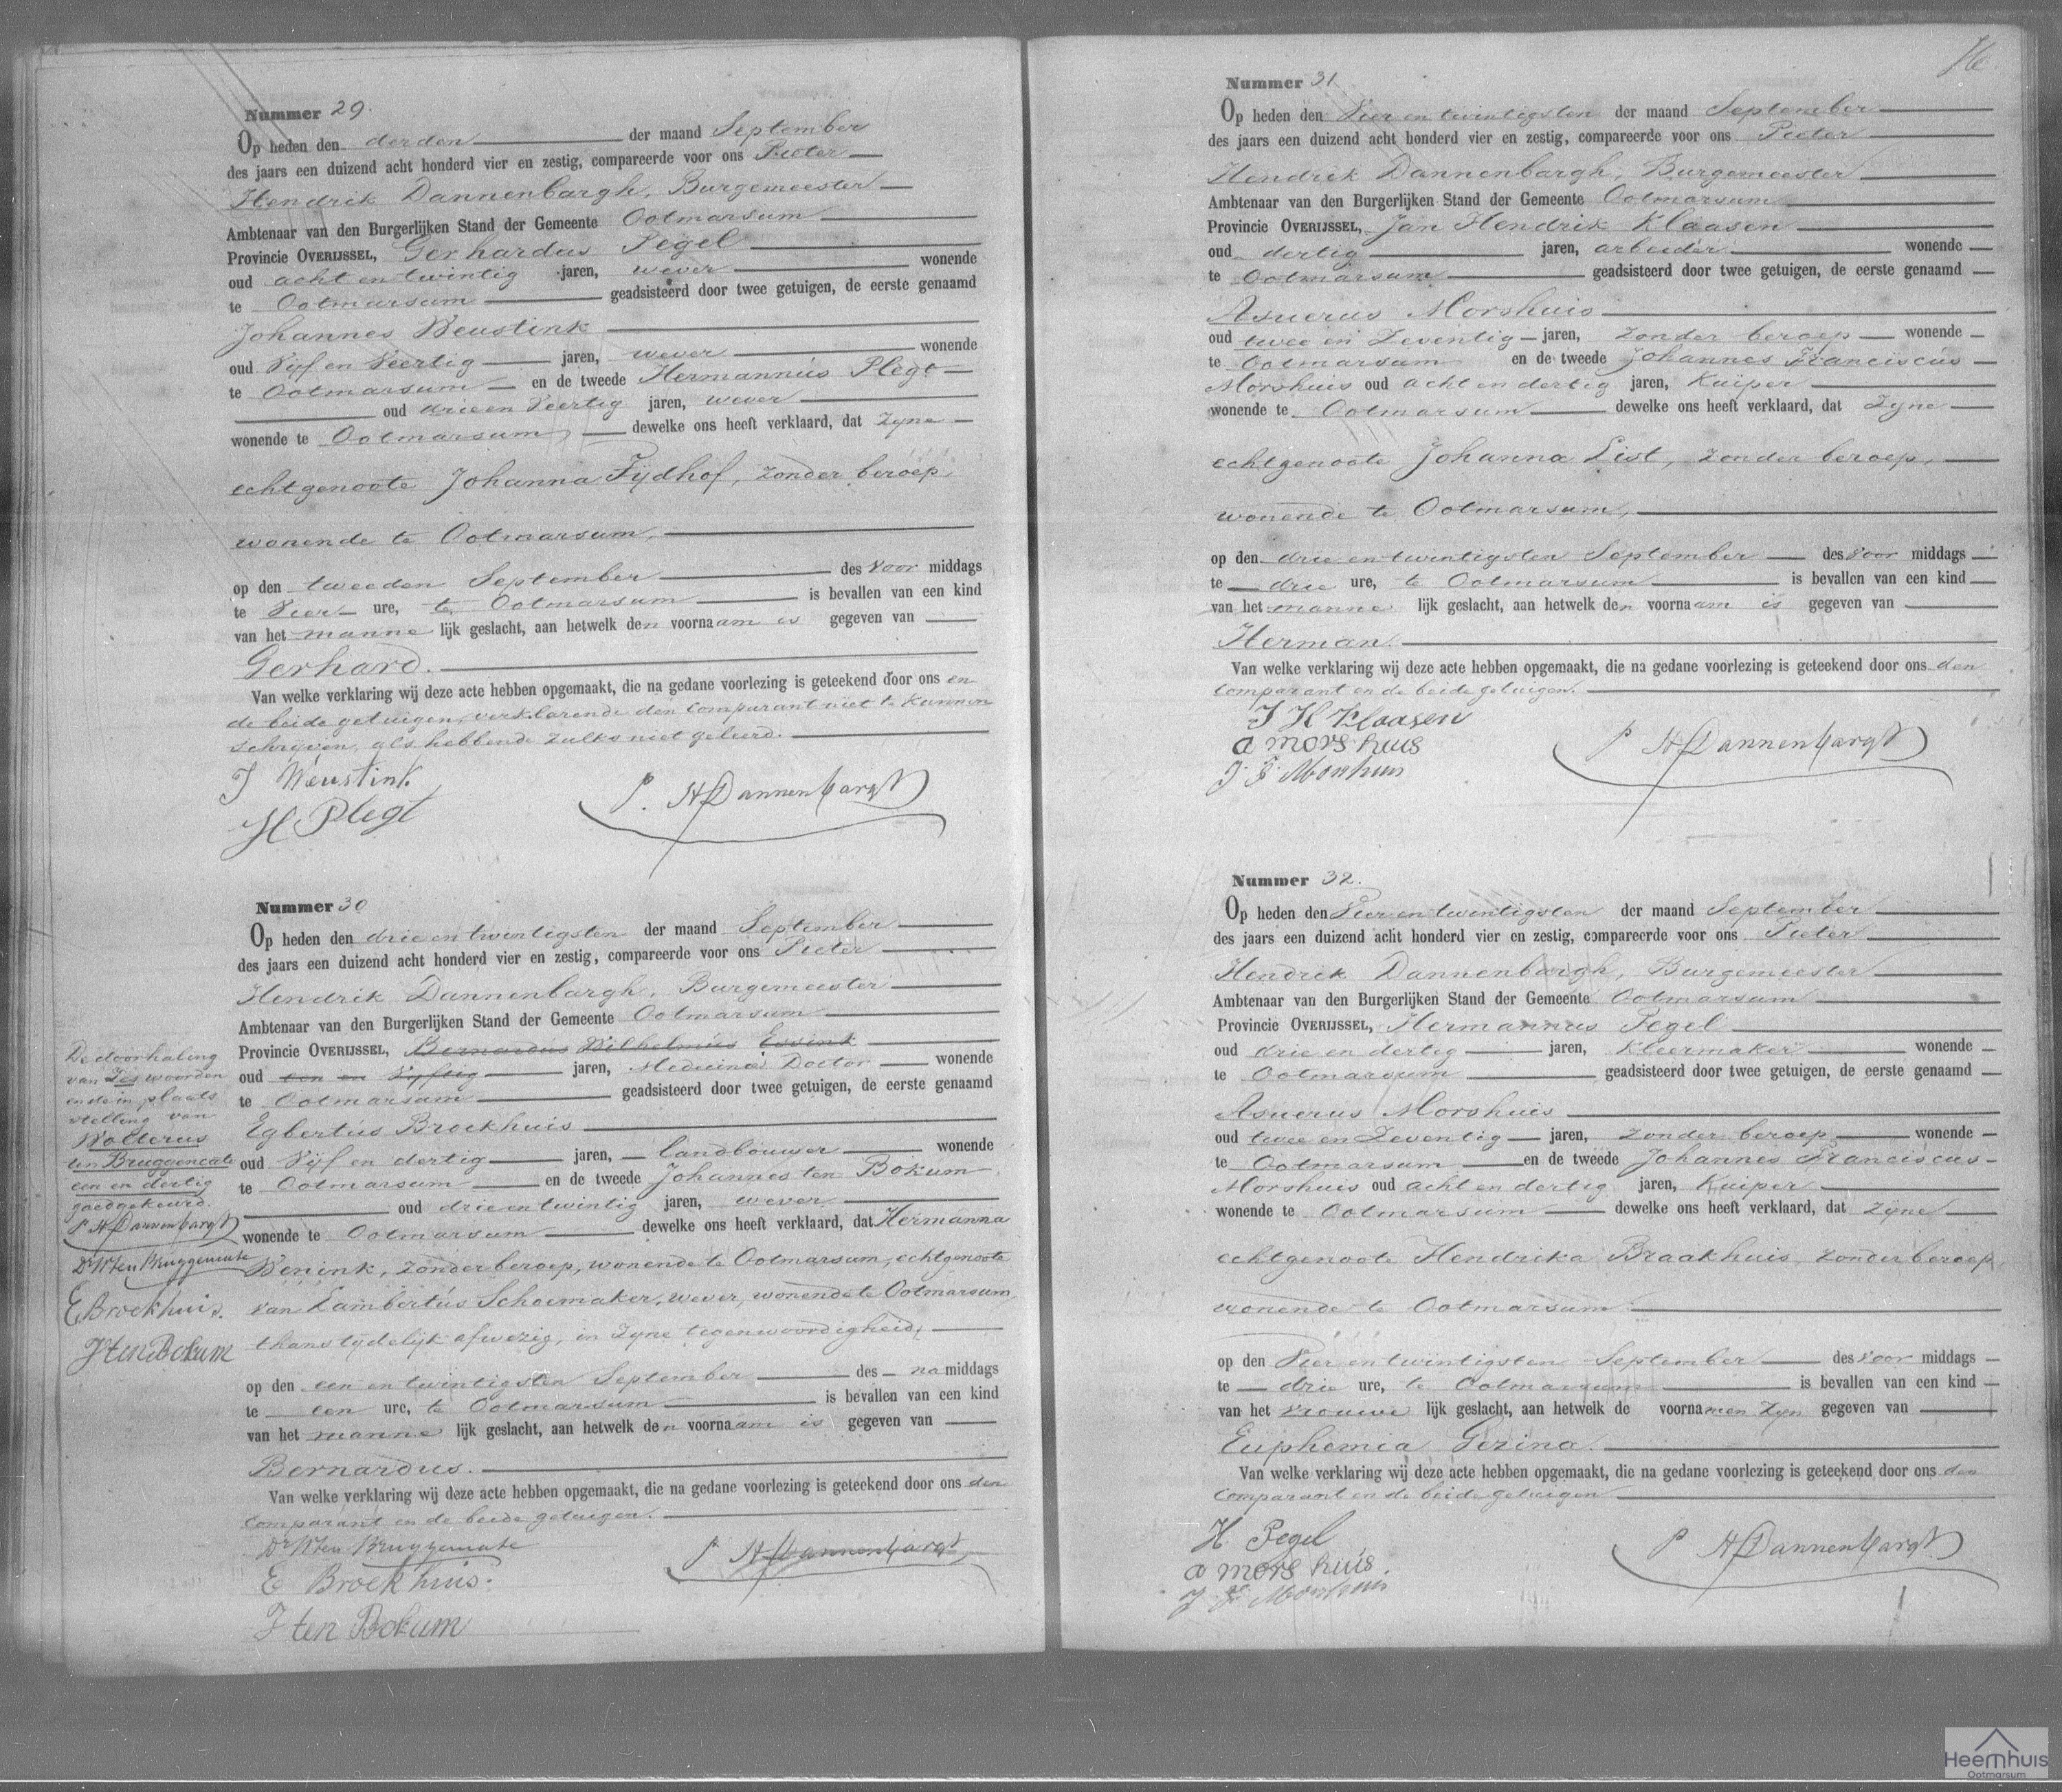 Nummer 29.
Op heden den derden der maand September
des jaars een duizend acht honderd vier en zestig, compareerde voor ons Pieter
Hendrik Dannenbargh, Burgemeester
Ambtenaar van den Burgerlijken Stand der Gemeente Ootmarsum
Provincie OVERIJSSEL, Gerhardus Pegel
oud acht en twintig jaren, wever wonende
te Ootmarsum geadsisteerd door twee getuigen, de eerste genaamd
Johannes Weustink
oud Vijf en Veertig jaren, wever wonende
te Ootmarsum en de tweede Hermannus Plegt
oud drie en Veertig jaren, wever
wonende te Ootmarsum, dewelke ons heeft verklaard, dat Zyne
echtgenoote Johanna Fydhof, zonder beroep,
wonende te Ootmarsum,
op den tweeden September des Voor middags
te Vier ure, te Ootmarsum is bevallen van een kind
van het manne lijk geslacht, aan hetwelk den voornaam is gegeven van
Gerhard.
Van welke verklaring wij deze acte hebben opgemaakt, die na gedane voorlezing is geteekend door ons en
de beide getuigen, verklarende den Comparant niet te Kunnen
Schrijven, als hebbende zulks niet geleerd.
J Weustink
H Plegt
P. H Dannenbargh
Nummer 30
Op heden den drie en twintigsten der maand September
des jaars een duizend acht honderd vier en zestig, compareerde voor ons Pieter
Hendrik Dannenbargh, Burgemeester
Ambtenaar van den Burgerlijken Stand der Gemeente Ootmarsum
Provincie OVERIJSSEL, Bernardus Wilhelmus Essink
oud een en Vyftig jaren, Medicina Doctor wonende
te Ootmarsum geadsisteerd door twee getuigen, de eerste genaamd
Egbertus Broekhuis
oud Vijf en dertig jaren, landbouwer wonende
te Ootmarsum en de tweede Johannes ten Bokum
oud drie en twintig jaren, wever
wonende te Ootmarsum dewelke ons heeft verklaard, dat Hermanna
Wenink, zonder beroep, wonende te Ootmarsum, echtgenoote
van Lambertus Schoemaker, wever, wonende te Ootmarsum,
thans tydelijk afwezig, in Zyne tegenwoordigheid,
op den een en twintigsten September des na middags
te een ure, te Ootmarsum is bevallen van een kind
van het manne lijk geslacht, aan hetwelk den voornaam is gegeven van
Bernardus.
Van welke verklaring wij deze acte hebben opgemaakt, die na gedane voorlezing is geteekend door ons den
Comparant en de beide getuigen.
Dr W ten Bruggencate
E Broekhuis.
J ten Bokum
P H Dannenbargh
De doorhaling
van Zes woorden
en de in plaats
stelling van
Wolterus
ten Bruggencate
een en dertig
goedgekeurd.
P H Dannenbargh
Dr W ten Bruggencate
E Broekhuis.
J ten Bokum
16
Nummer 31
Op heden den Vier en twintigsten der maand September
des jaars een duizend acht honderd vier en zestig, compareerde voor ons Pieter
Hendrik Dannenbargh, Burgemeester
Ambtenaar van den Burgerlijken Stand der Gemeente Ootmarsum
Provincie OVERIJSSEL, Jan Hendrik Klaasen
oud dertig jaren, arbeider wonende
te Ootmarsum geadsisteerd door twee getuigen, de eerste genaamd
Asuerus Morshuis
oud twee en Zeventig jaren, zonder beroep wonende
te Ootmarsum en de tweede Johannes Franciscus
Morshuis oud acht en dertig jaren, Kuiper
wonende te Ootmarsum dewelke ons heeft verklaard, dat Zyne
echtgenoote Johanna List, zonder beroep,
wonende te Ootmarsum,
op den drie en twintigsten September des Voor middags
te drie ure, te Ootmarsum is bevallen van een kind
van het manne lijk geslacht, aan hetwelk den voornaam is gegeven van
Herman.
Van welke verklaring wij deze acte hebben opgemaakt, die na gedane voorlezing is geteekend door ons den
Comparant en de beide getuigen.
J H Klaasen
a morshuis
J. F. Morshuis
P H Dannenbargh
Nummer 32.
Op heden den Vier en twintigsten der maand September
des jaars een duizend acht honderd vier en zestig, compareerde voor ons Pieter
Hendrik Dannenbargh, Burgemeester
Ambtenaar van den Burgerlijken Stand der Gemeente Ootmarsum
Provincie OVERIJSSEL, Hermannus Pegel
oud drie en dertig jaren, Kleermaker wonende
te Ootmarsum geadsisteerd door twee getuigen, de eerste genaamd
Asuerus Morshuis
oud twee en Zeventig jaren, zonder beroep wonende
te Ootmarsum en de tweede Johannes Franciscus
Morshuis oud acht en dertig jaren, Kuiper
wonende te Ootmarsum dewelke ons heeft verklaard, dat Zyne
echtgenoote Hendrika Braakhuis, zonder beroep,
wonende te Ootmarsum.
op den Vier en twintigsten September des Voor middags
te drie ure, te Ootmarsum is bevallen van een kind
van het Vrouwe lijk geslacht, aan hetwelk de voornamen Zyn gegeven van
Euphemia Gerina.
Van welke verklaring wij deze acte hebben opgemaakt, die na gedane voorlezing is geteekend door ons den
Comparant en de beide getuigen
H Pegel
a morshuis.
J F Morshuis
P H Dannenbargh
Heemhuis
Ootmarsum